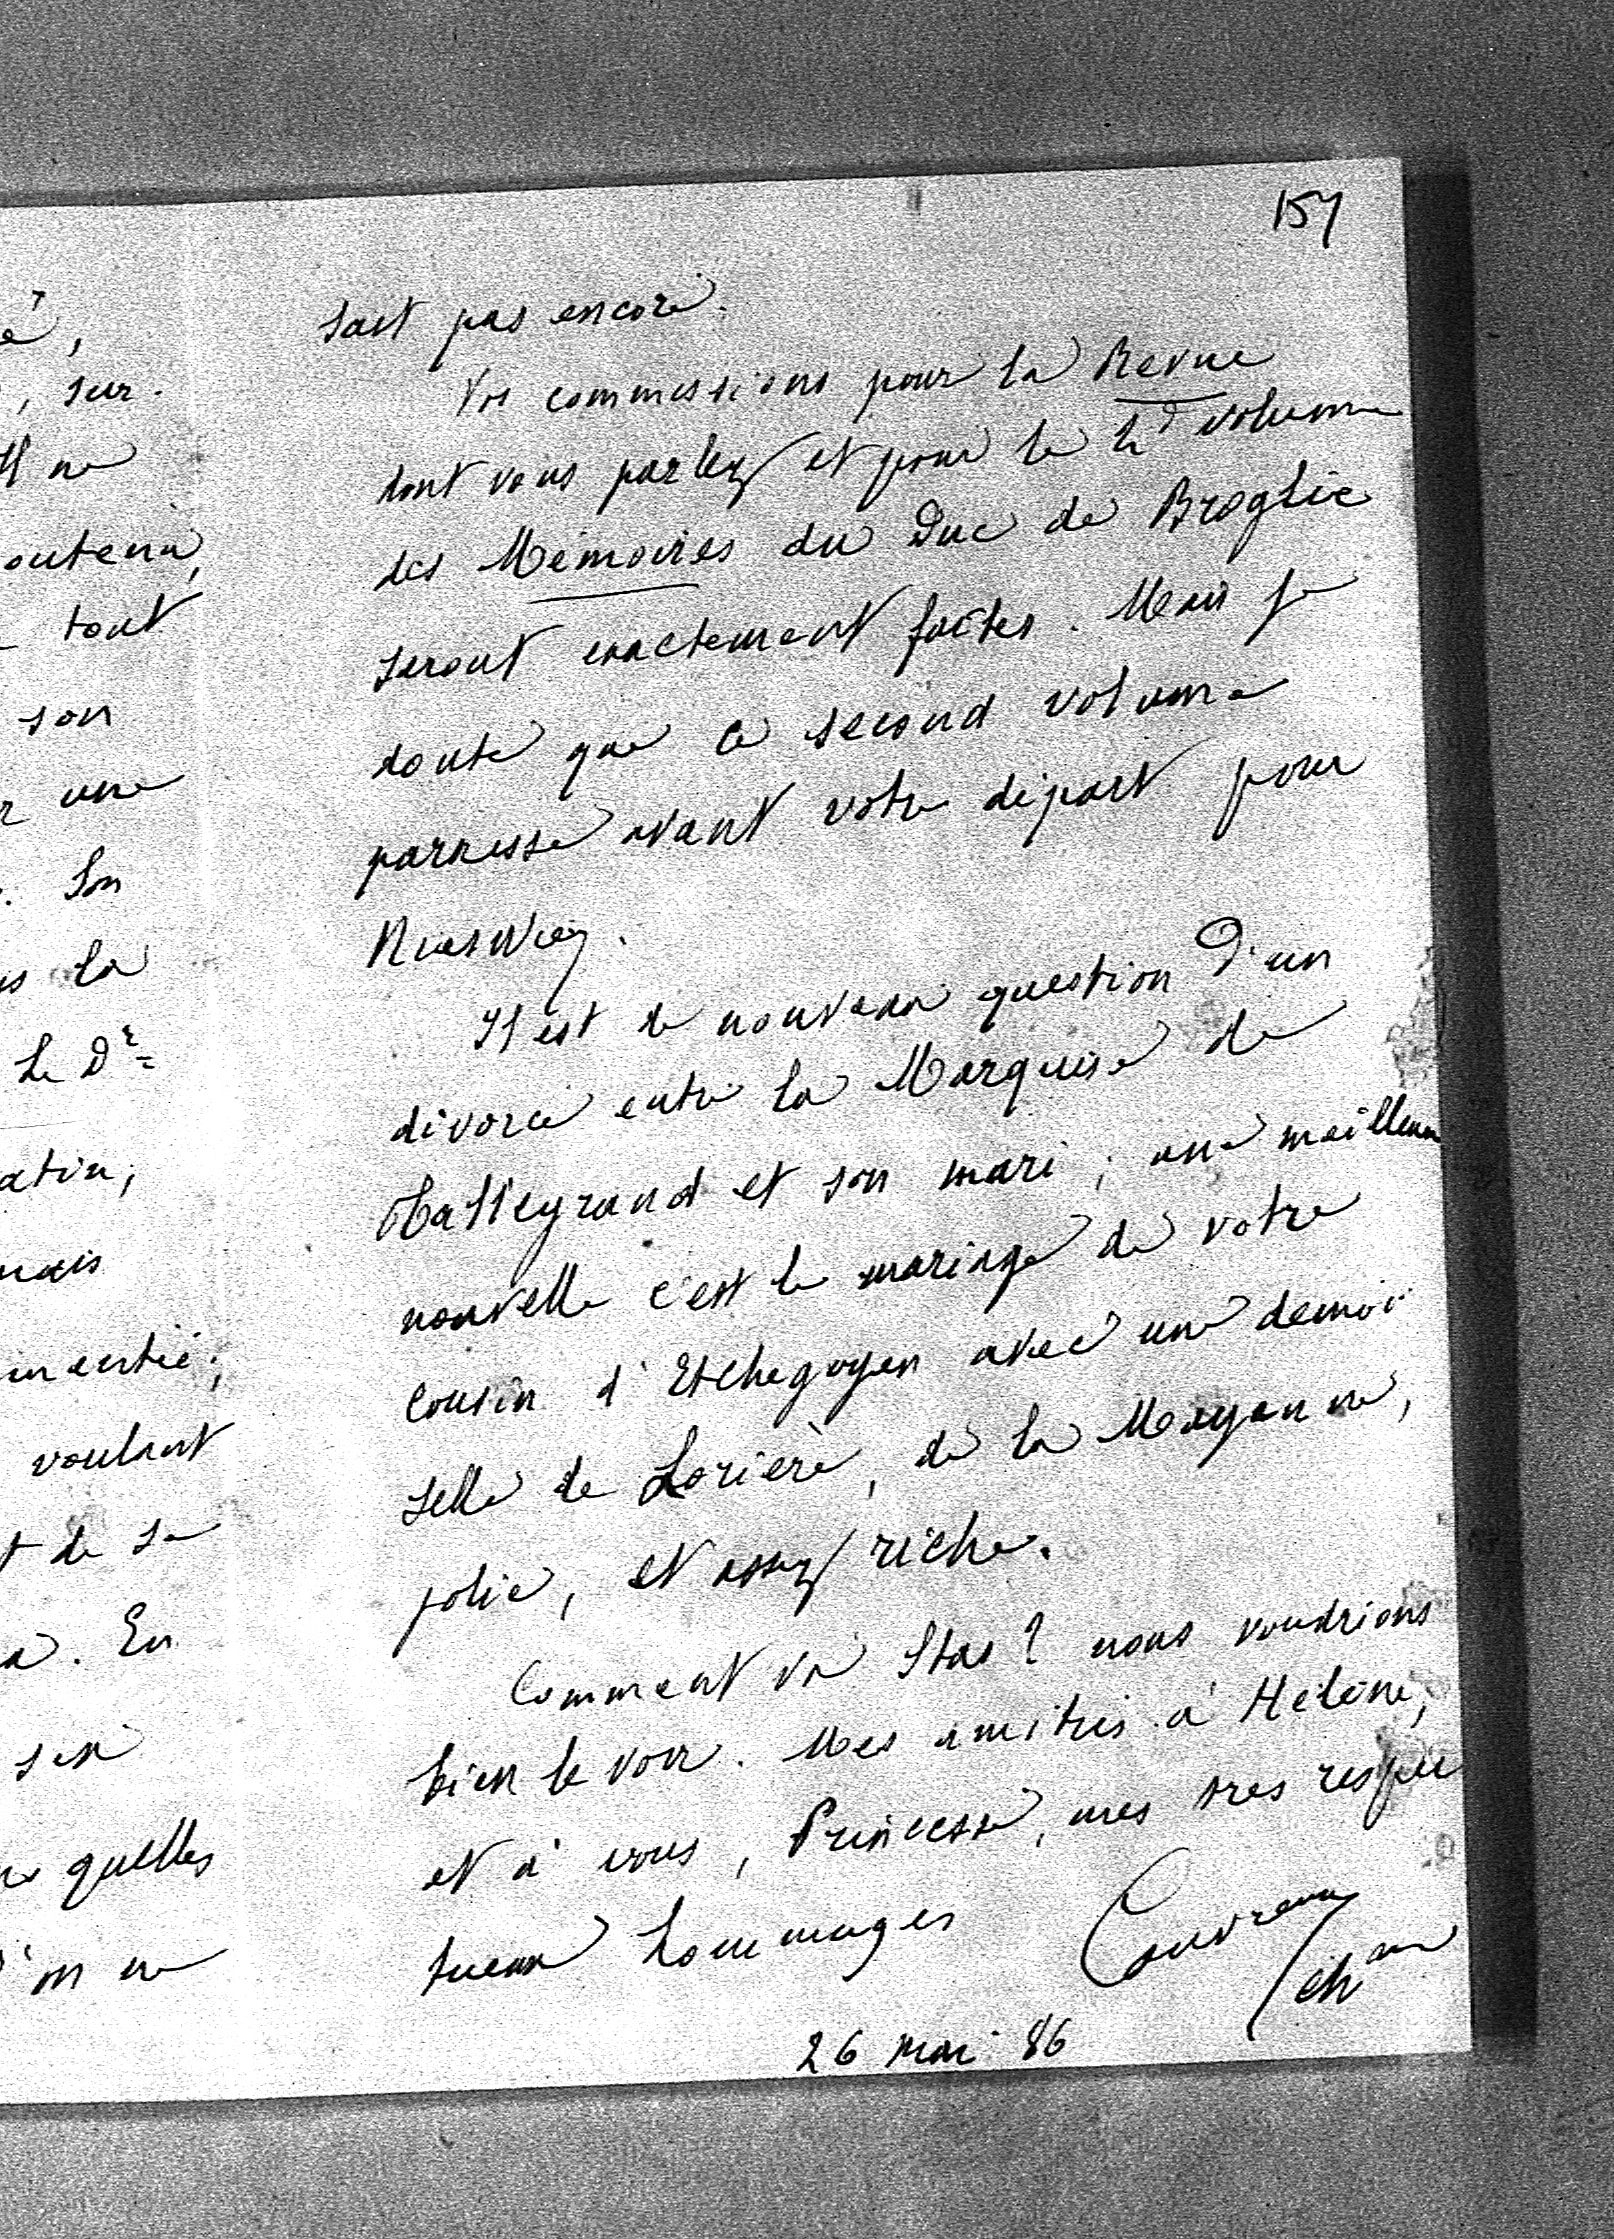 157
é,
, sur.
Il ne
outenir,
tout
son
une
. Son
la
Le Dr
atin,
mais
voulant
de sa
. En
quelles
l'on ne
sait pas encore.
Vos commissions pour la Revue
dont vous parlez et pour le 2d volume
des Mémoires du Duc de Broglie
seront exactement faites. Mais je
doute que ce second volume
paraisse avant votre départ pour
Nieswiez.
Il est de nouveau question d'un
divorce entre la Marquise de
Talleyrand et son mari ; une meilleure
nouvelle c'est le mariage de votre
cousin d'Etchegoyen avec une demoi
selle de Lorière, de la Mayenne,
jolie, et assez riche.
Comment va Stas ? nous voudrions
bien le voir. Mes amitiés à Hélène,
et à vous, Princesse, mes très respec
tueux hommages
Couvreux
26 mai 86